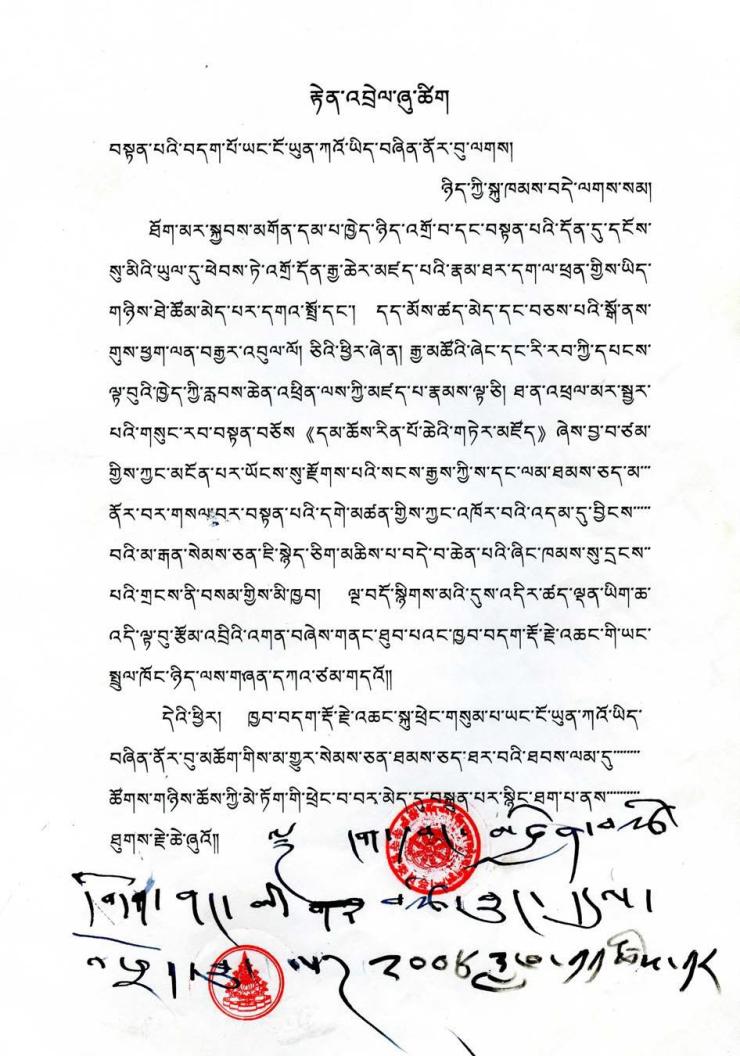 རྟེན་འབྲེལ་ཞུ་ཚིག
བསྟན་པའི་བདག་པོ་ཡང་ངོ་ཡུན་ཀའོ་ཡིད་བཞིན་ནོར་བུ་ལགས།
ཉིད་ཀྱི་སྐུ་ཁམས་བདེ་ལགས་སམ།
ཐོག་མར་སྐྱབས་མགོན་དམ་པ་ཁྱེད་ཉིད་འགྲོ་བ་དང་བསྟན་པའི་དོན་དུ་དངོས་
སུ་མིའི་ཡུལ་དུ་ཕེབས་ཏེ་འགྲོ་དོན་རྒྱ་ཆེར་མཛད་པའི་རྣམ་ཐར་དག་ལ་ཕྲན་གྱིས་ཡིད་
གཉིས་ཐེ་ཚོམ་མེད་པར་དགའ་སྤྲོ་དང་། དད་མོས་ཚད་མེད་དང་བཅས་པའི་སྒོ་ནས་
གུས་ཕྱག་ལན་བརྒྱར་འབུལ་ལོ། ཅིའི་ཕྱིར་ཞེ་ན། རྒྱ་མཚོའི་ཞེང་དང་རི་རབ་ཀྱི་དཔངས་
ལྟ་བུའི་ཁྱེད་ཀྱི་རླབས་ཆེན་འཕྲིན་ལས་ཀྱི་མཛད་པ་རྣམས་ལྟ་ཅི། ཐ་ན་འཕྲལ་མར་སྦྱར་
པའི་གསུང་རབ་བསྟན་བཅོས《དམ་ཆོས་རིན་པོ་ཆེའི་གཏེར་མཛོད》ཞེས་བྱ་བ་ཙམ་
གྱིས་ཀྱང་མངོན་པར་ཡོངས་སུ་རྫོགས་པའི་སངས་རྒྱས་ཀྱི་ས་དང་ལམ་ཐམས་ཅད་མ་
ནོར་བར་གསལ་བར་བསྟན་པའི་དགེ་མཚན་གྱིས་ཀྱང་འཁོར་བའི་འདམ་དུ་བྱིངས་
བའི་མ་རྒན་སེམས་ཅན་ཇི་སྙེད་ཅིག་མཆིས་པ་བདེ་བ་ཆེན་པའི་ཞིང་ཁམས་སུ་དྲངས་
པའི་གྲངས་ནི་བསམ་གྱིས་མི་ཁྱབ། ལྔ་བདོ་སྙིགས་མའི་དུས་འདིར་ཚད་ལྡན་ཡིག་ཆ་
འདི་ལྟ་བུ་རྩོམ་འབྲིའི་འགན་བཞེས་གནང་ཐུབ་པའང་ཁྱབ་བདག་རྡོ་རྗེ་འཆང་གི་ཡང་
སྤྲུལ་ཁོང་ཉིད་ལས་གཞན་དཀའ་ཙམ་གདའོ།།
དེའི་ཕྱིར། ཁྱབ་བདག་རྡོ་རྗེ་འཆང་སྐུ་ཕྲེང་གསུམ་པ་ཡང་ངོ་ཡུན་ཀའོ་ཡིད་
བཞིན་ནོར་བུ་མཆོག་གིས་མ་གྱུར་སེམས་ཅན་ཐམས་ཅད་ཐར་བའི་ཐབས་ལམ་དུ་
ཚོགས་གཉིས་ཆོས་ཀྱི་མེ་ཏོག་གི་ཕྲེང་བ་བར་མེད་དུ་བསྐྲུན་པར་སྙིང་ཐག་པ་ནས་
ཐུགས་རྗེ་ཆེ་ཞུའོ།།